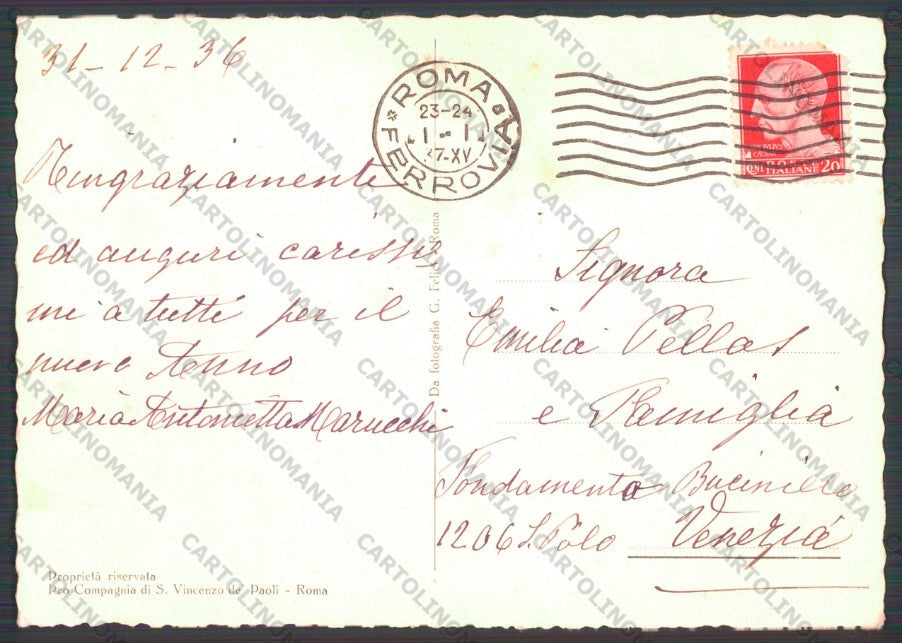 31-12-36
Ringraziamenti
ed auguri carissi
mi a tutti per il
nuovo Anno
Maria Antonietta Marucchi
ROMA FERROVIA
23-24
1-1
37-XV
POSTE ITALIANE 20
Da fotografia G. Felici - Roma
Signora
Emilia Pellas
e Famiglia
Fondamenta
1206 S. Polo Venezia
Proprietà riservata
Pro Compagnia di S. Vincenzo de' Paoli - Roma
CARTOLINOMANIA